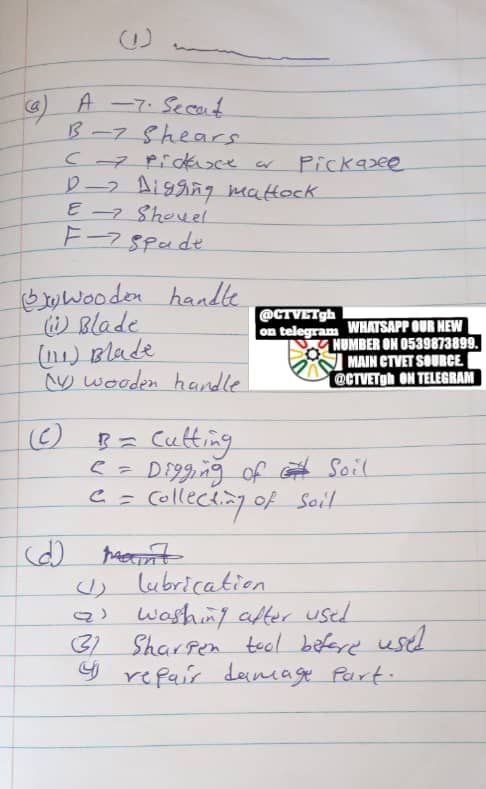 (1)
(a) A → Secat
B → Shears
C → Pickaxce or Pickaxee
D → Digging mattock
E → Shovel
F → Spade
(b) (i) Wooden handle
(ii) Blade
(iii) Blade
(iv) wooden handle
@CTVETgh
on telegram
WHATSAPP OUR NEW
NUMBER ON 0539873899.
MAIN CTVET SOURCE.
@CTVETgh ON TELEGRAM
(c) B = Cutting
C = Digging of Soil
G = Collecting of Soil
(d)
(1) lubrication
2) washing after used
(3) Sharpen tool before used
4) repair damage part.